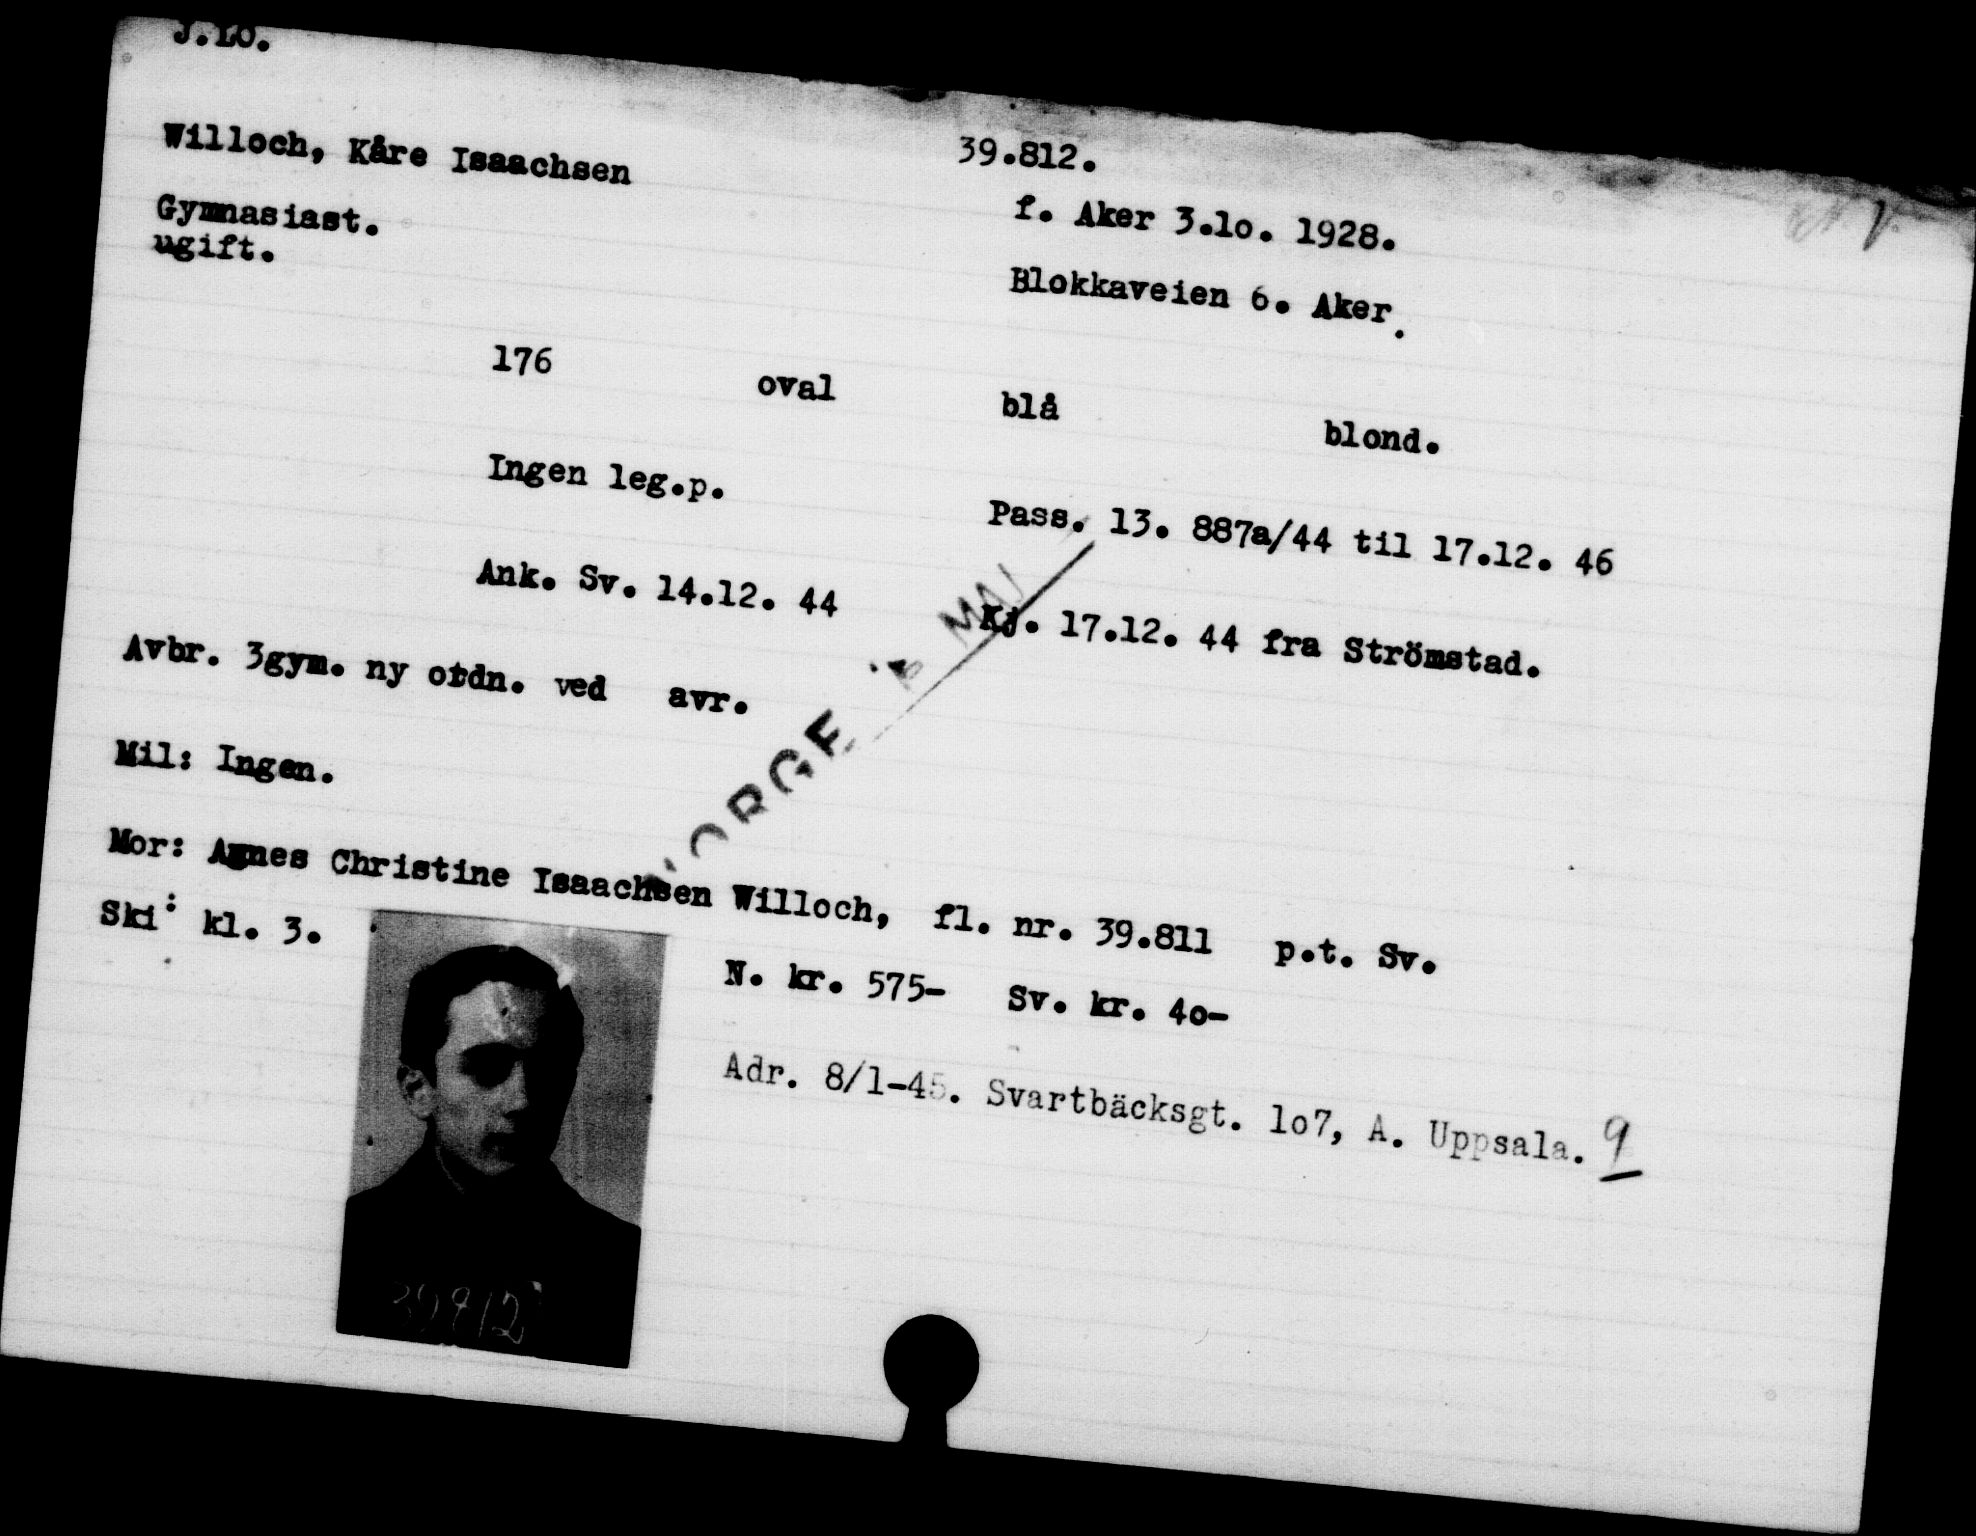 J.Lo.
Willoch, Kåre Isaachsen 39.812.
Gymnasiast. f. Aker 3.lo. 1928.
ugift. Blokkaveien 6. Aker.
176 oval blå blond.
Ingen leg.p. Pass. 13. 887a/44 til 17.12. 46
Ank. Sv. 14.12. 44 Kj. 17.12. 44 fra Strömstad.
Avbr. 3gym. ny ordn. ved avr.
NORGE MAI
Mil: Ingen.
Mor: Agnes Christine Isaachsen Willoch, fl. nr. 39.811 p.t. Sv.
Ski: kl. 3. N. kr. 575- Sv. kr. 4o-
Adr. 8/1-45. Svartbäcksgt. lo7, A. Uppsala. 9
39812